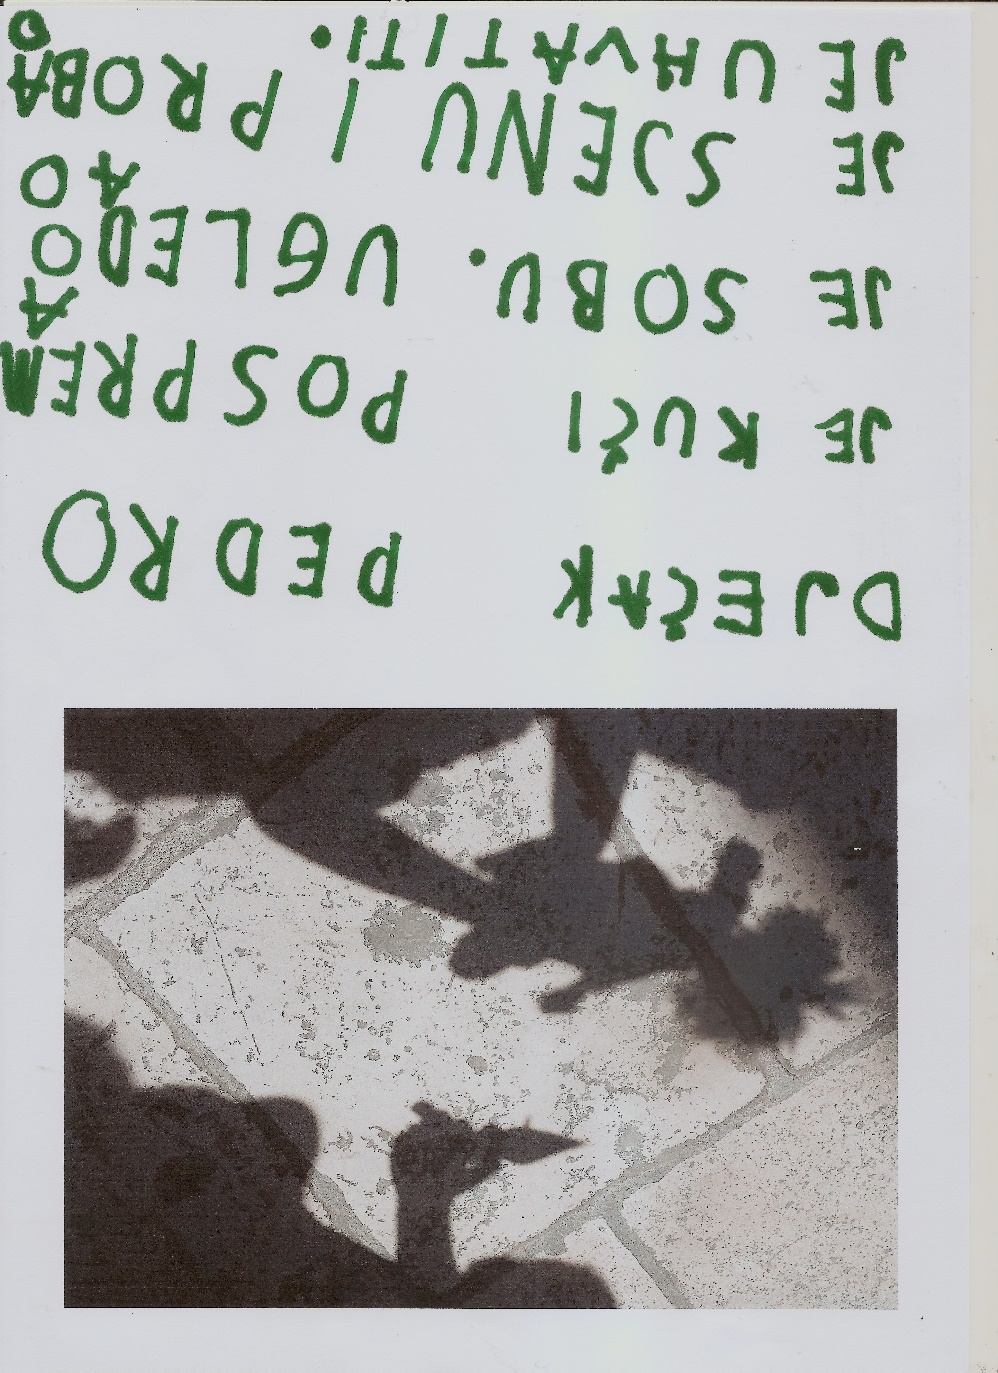 DJEČAK PEDRO
JE KUČI POSPREMAO
JE SOBU. UGLEDAO
JE SJENU I PROBAO
JE UHVATITI.